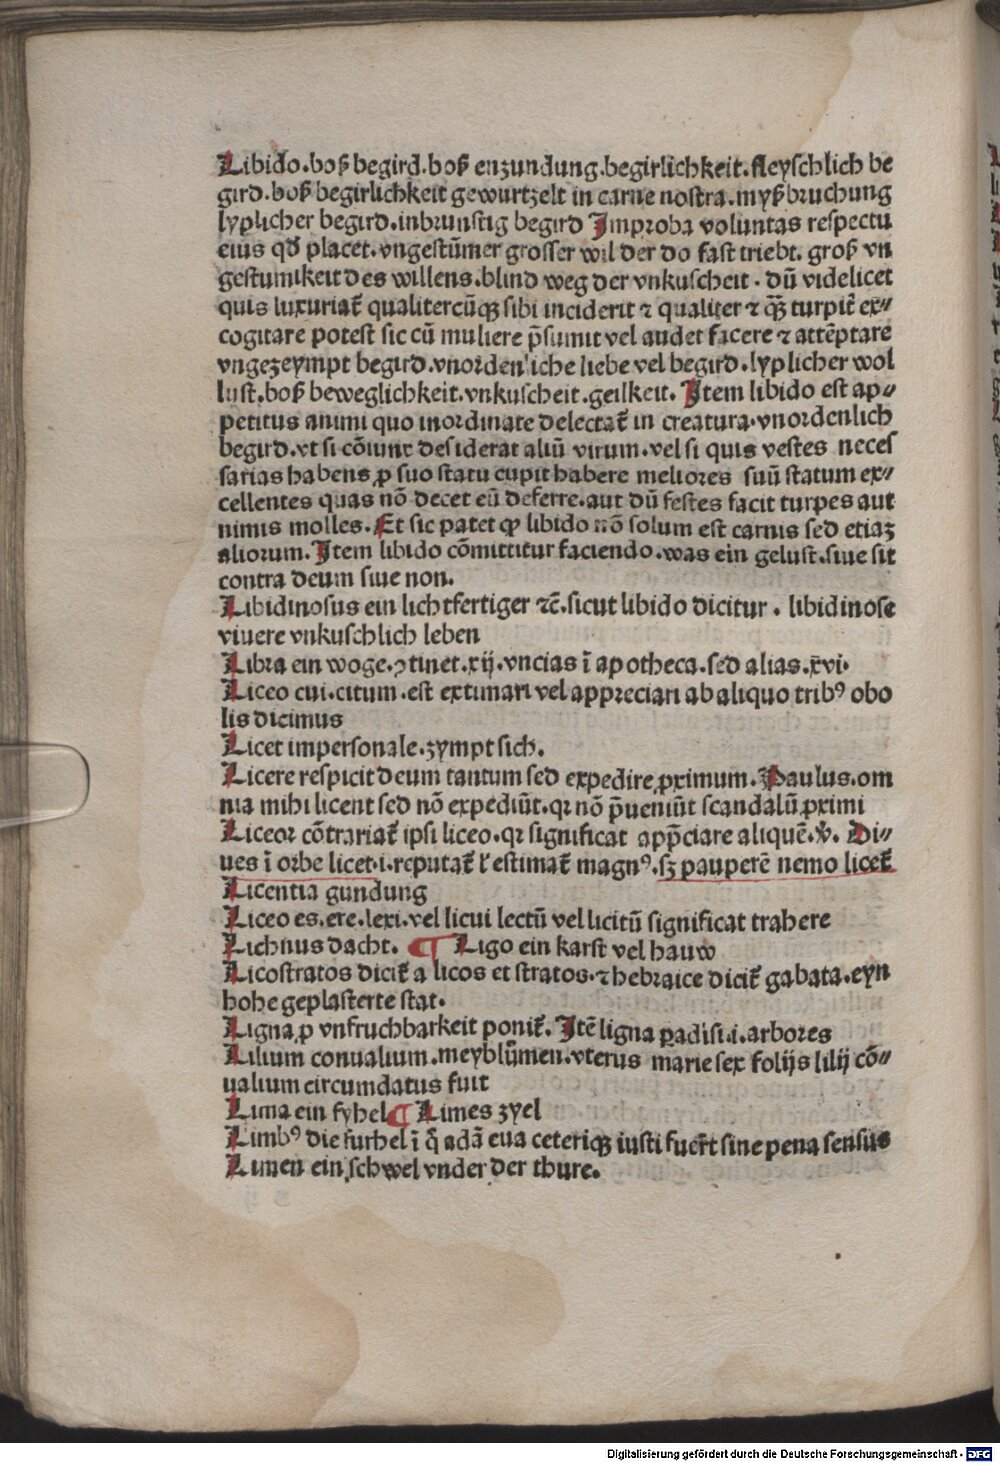 Libido.boß begird.boß enzundung.begirlichkeit.fleyschlich be
gird.boß begirlichkeit gewurtzelt in carne nostra.myßbruchung
lyplicher begird.inbrunstig begird Improba voluntas respectu
eius qd̕ placet.vngestūmer grosser wil der do fast triebt. groß vn
gestumikeit des willens.blind weg der vnkuscheit. dū videlicet
quis luxuriat̄ qualitercūqꝫ sibi inciderit ⁊ qualiter ⁊ qꝫ̄ turpit̄ ex⸗
cogitare potest sic cū muliere p̄sumit vel audet facere ⁊ attēptare
vngezeympt begird.vnordenliche liebe vel begird.lyplicher wol
lust.boß beweglichkeit.vnkuscheit.geilkeit. Item libido est ap⸗
petitus animi quo inordinate delectat̄ in creatura.vnordenlich
begird.vt si cōiunc desiderat aliū virum.vel si quis vestes neces
sarias habens ꝓ suo statu cupit habere meliores suū statum ex⸗
cellentes quas nō decet eū deferre.aut dū festes facit turpes aut
nimis molles. Et sic patet ꝙ libido nō solum est carnis sed etiaꝫ
aliorum. Item libido cōmittitur faciendo.was ein gelust.siue sit
contra deum siue non.
Libidinosus ein lichtfertiger ⁊c̄.sicut libido dicitur. libidinose
viuere vnkuschlich leben
Libra ein woge.ꝯtinet.xij.vncias ī apotheca.sed alias.xvi.
Liceo cui.citum.est extimari vel appreciari ab aliquo tribꝰ obo
lis dicimus
Licet impersonale.zympt sich.
Licere respicit deum tantum sed expedire ꝓximum. Paulus.om
nia mihi licent sed nō expediūt.qꝛ nō p̄ueniūt scandalū ꝓximi
Liceor cōtrariat̄ ipsi liceo.qꝛ significat app̄ciare aliquē.v̄. Di⸗
ues ī orbe licet.i.reputat̄ l̕ estimat̄ magnꝰ.sꝫ pauperē nemo licet̄
Licentia gundung
Liceo es.ere.lexi.vel licui lectū vel licitū significat trahere
Lichnus dacht. ¶ Ligo ein karst vel hauw
Licostratos dicit̄ a licos et stratos.⁊ hebraice dicit̄ gabata.eyn
hohe geplasterte stat.
Ligna ꝓ vnfruchbarkeit ponit̄. Itē ligna ꝑadisi.i.arbores
Lilium conualium.meyblūmen.vterus marie sex folijs lilij cō⸗
ualium circumdatus fuit
Lima ein fyhel ¶ Limes zyel
Limbꝰ die furhel ī q̄ adā eua ceteriqꝫ iusti fuer̄t sine pena sensus
Limen ein schwel vnder der thure.
Digitalisierung gefördert durch die Deutsche Forschungsgemeinschaft - DFG